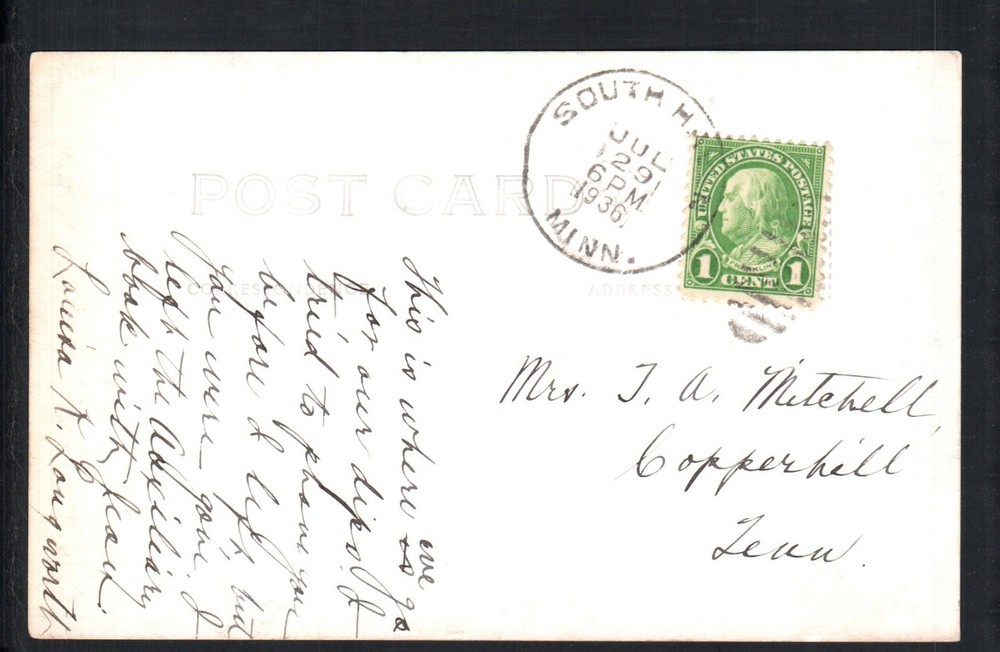 POST CARD
CORRESPONDENCE
ADDRESS
SOUTH H
JUL
29
6 PM
1936
MINN.
UNITED STATES POSTAGE
FRANKLIN
1 CENT 1
Mrs. T. A. Mitchell,
Copperhill
Tenn.
This is where we go
for our dips. I
tried to phone you
before I left but
you were gone. I
left the Auxiliary
book with Jean.
Louisa K. Longworth